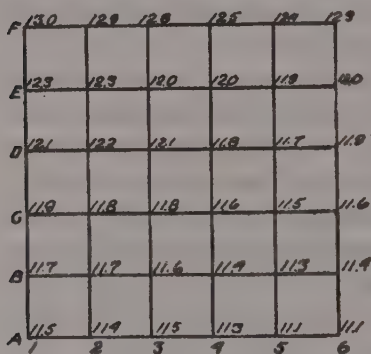 F 13.0 12.9 12.8 12.5 12.4 12.9
E 12.3 12.3 12.0 12.0 11.9 12.0
D 12.1 12.2 12.1 11.8 11.7 11.8
C 11.9 11.8 11.8 11.6 11.5 11.6
B 11.7 11.7 11.6 11.4 11.3 11.4
A 11.5 11.4 11.5 11.3 11.1 11.1
1 2 3 4 5 6